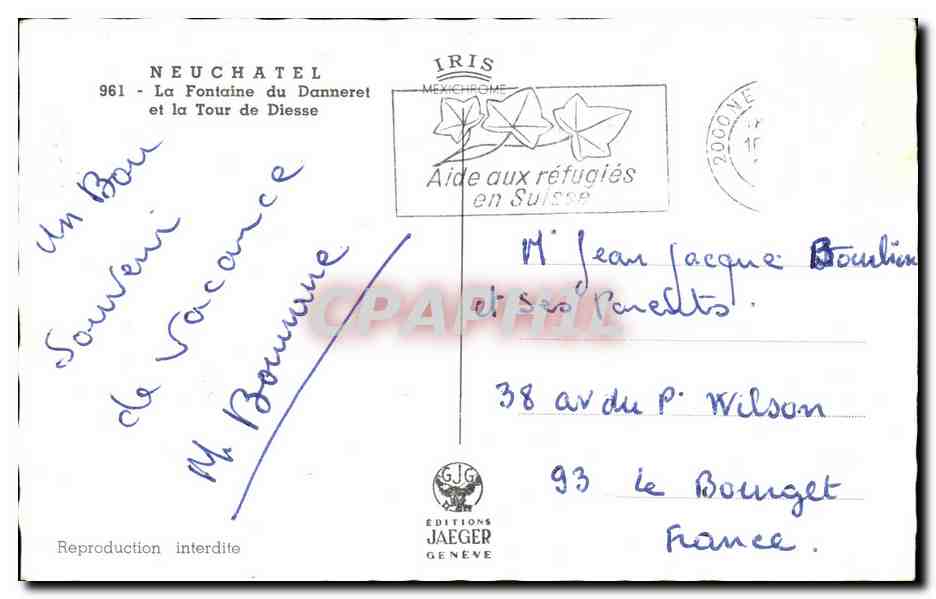 NEUCHATEL
961 - La Fontaine du Danneret
et la Tour de Diesse
IRIS
MEXICHROME
Aide aux réfugiés
en Suisse
2000 NE
Un Bon
Souvenir
de Vacance
M. Bomme
Mr Jean Jacque
et ses Parents.
38 av du P. Wilson
93 Le Bourget
France.
CPAPHIL
GJG
ÉDITIONS
JAEGER
GENÈVE
Reproduction interdite